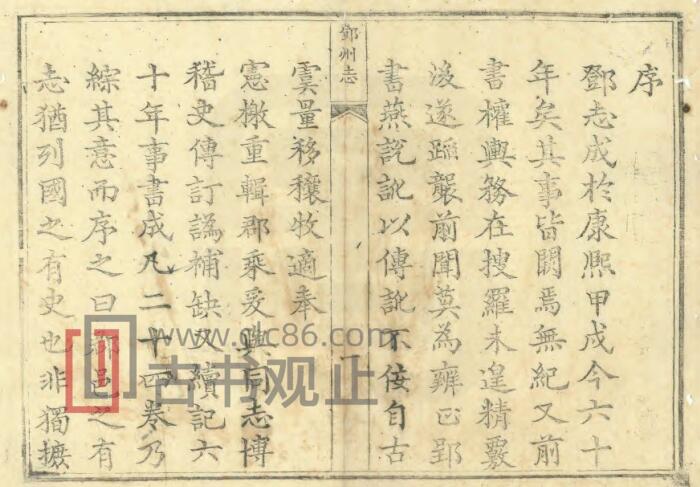 序
鄧志成於康熙甲戌今六十
年矣其事皆闕焉無紀又前
書權輿務在搜羅未遑精覈
後遂蹈襲前聞莫為辨正郢
書燕說訛以傳訛不佞自古
鄧州志
一
虞量移穰牧適奉
憲檄重輯郡乘爰與同志博
稽史傳訂譌補缺又續記六
十年事書成凡二十四卷乃
綜其意而序之曰郡邑之有
志猶列國之有史也非獨摭
古书观止